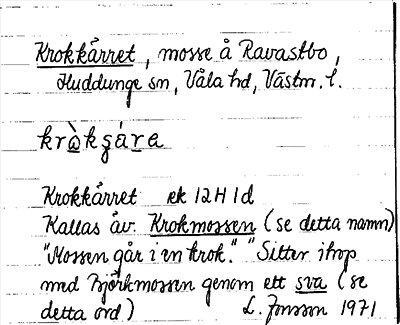 Krokkärret, mosse å Ravastbo,
Huddunge sn, Våla hd, Västm. l.
krὰkʂára
Krokkärret ek 12H 1d
Kallas äv. Krokmossen (se detta namn)
"Mossen går i en krok." "Sitter ihop
med Björkmossen genom ett sva (se
detta ord) L. Jonsson 1971